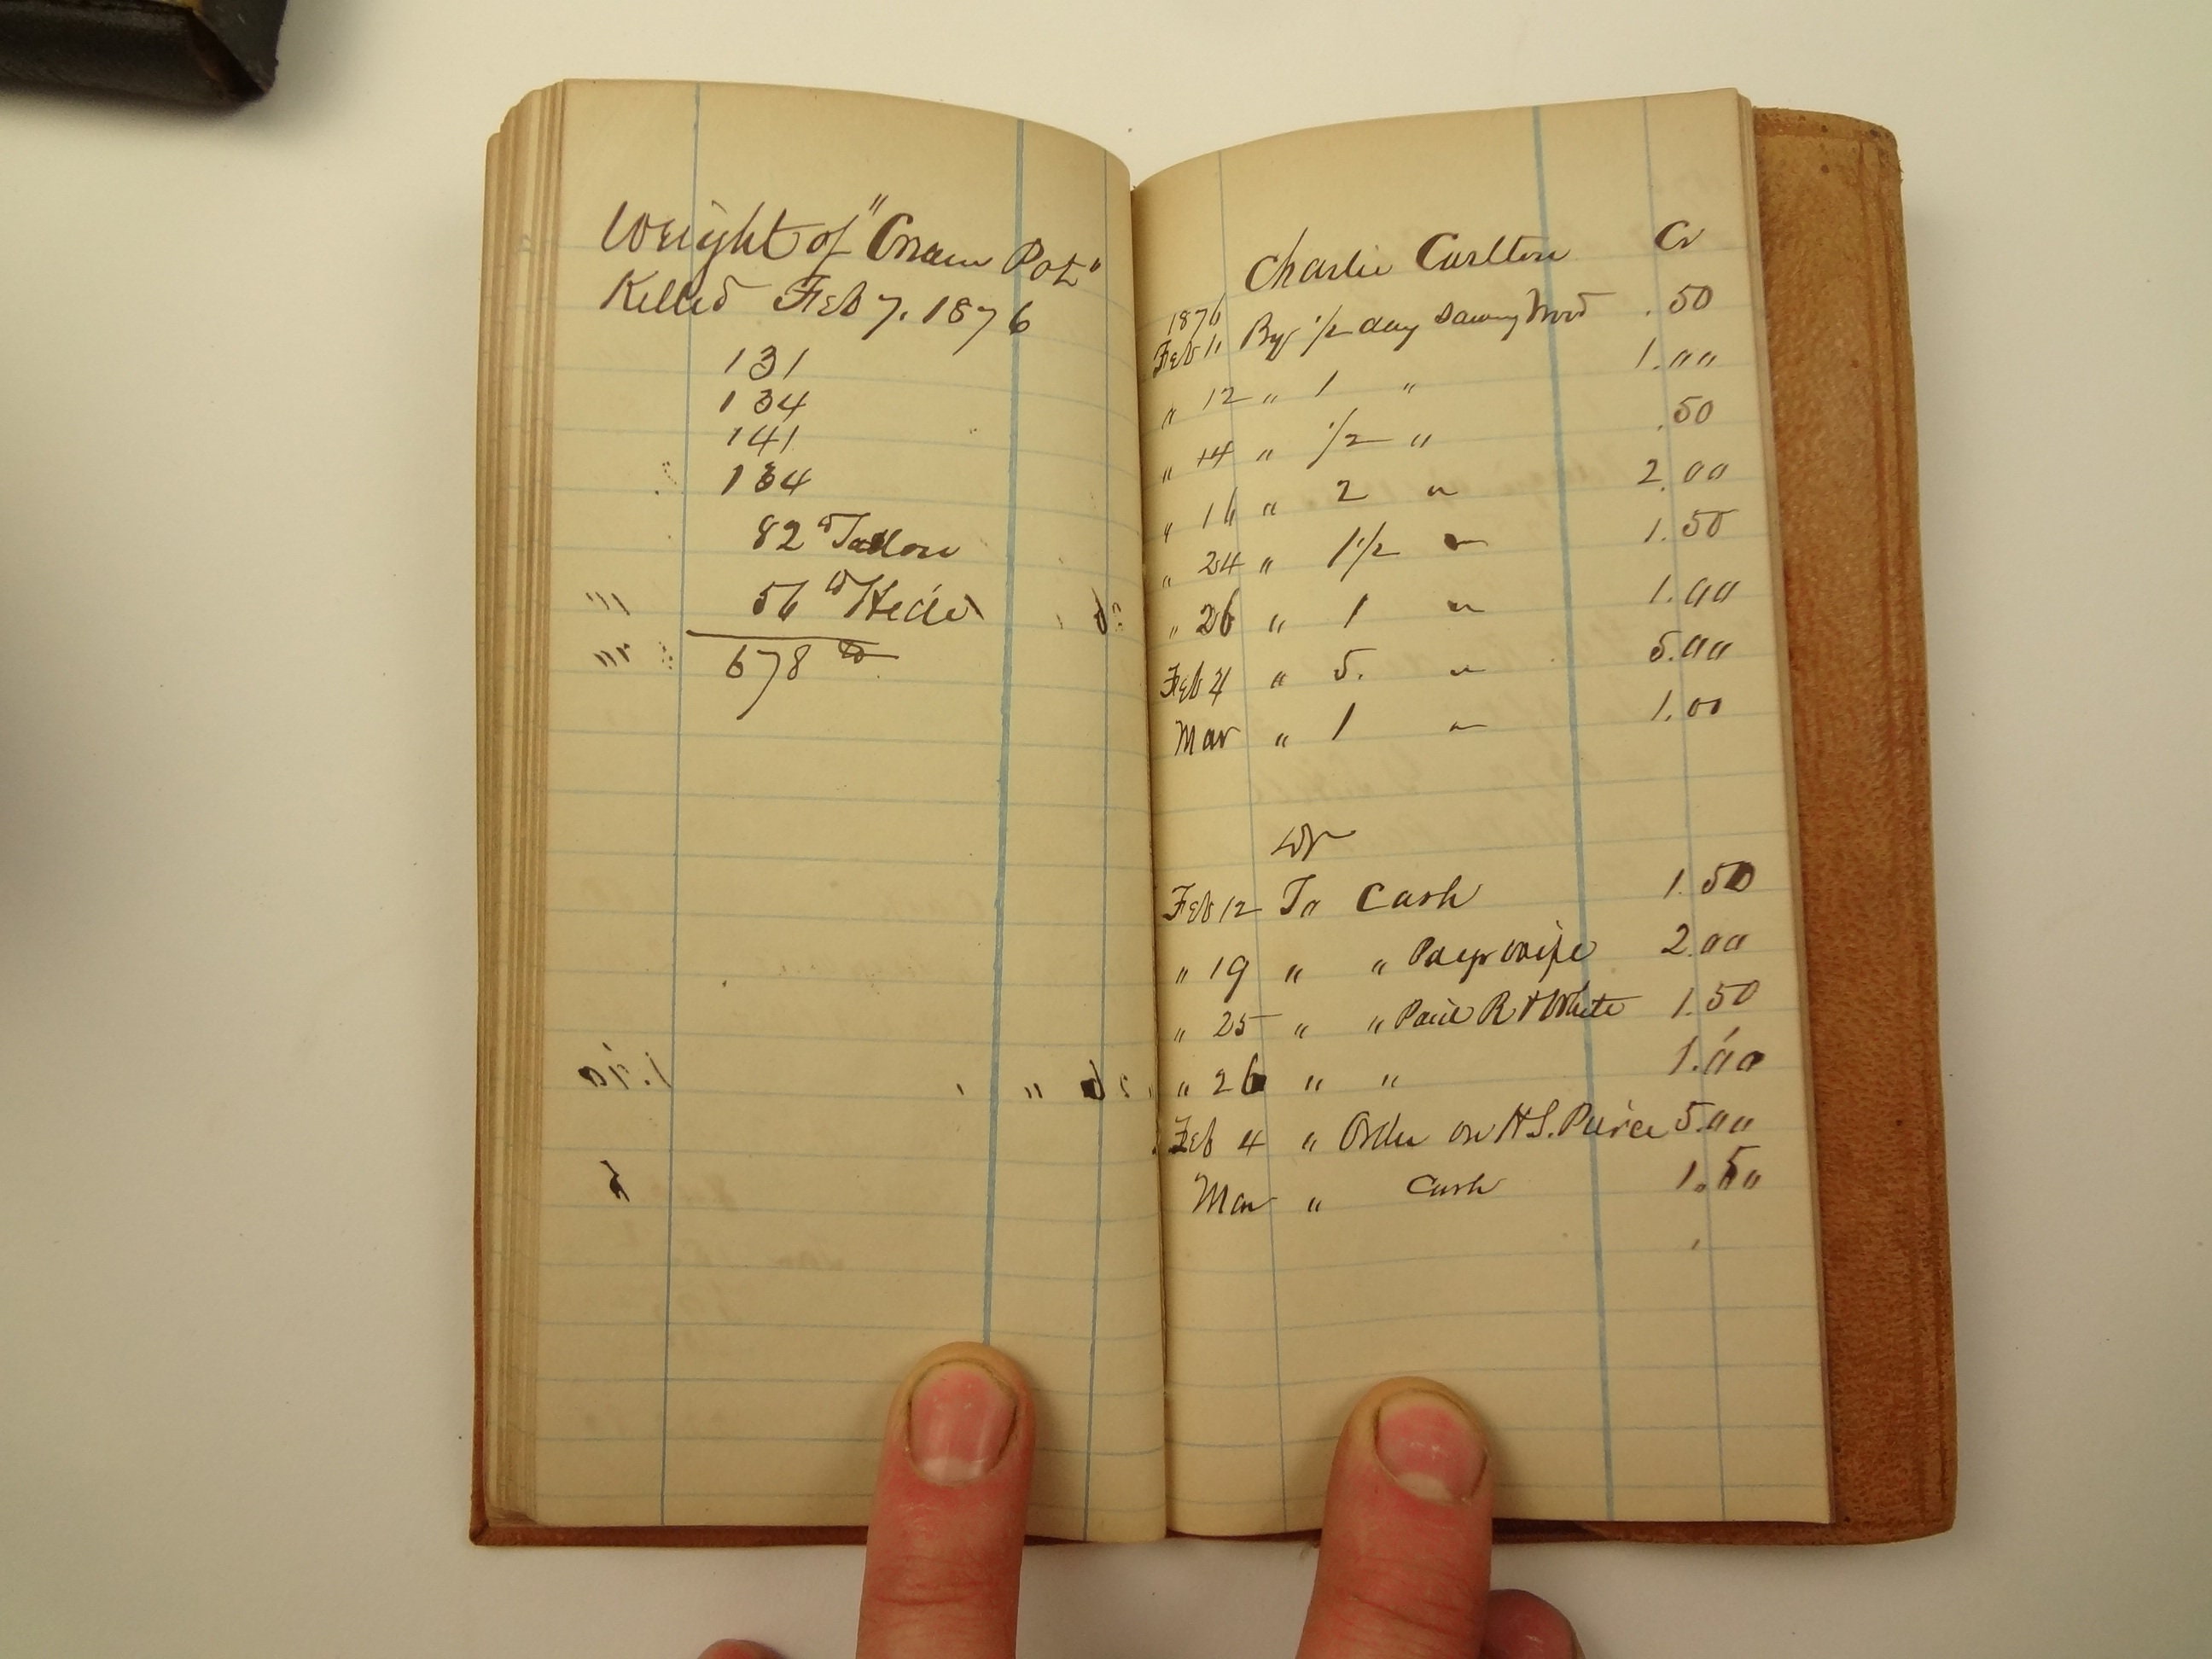 Weight of "Cream Pot"
Killed Feb 7. 1876
131
134
141
134
82 lb Tallow
56 lb Hide
678 lb
Charlie Carlton Cr
1876
Feb 11 By 1/2 day Sawing Wood .50
" 12 " 1 " 1.00
" 14 " 1/2 " .50
" 16 " 2 " 2.00
" 24 " 1 1/2 " 1.50
" 26 " 1 " 1.00
Feb 4 " 5. " 5.00
Mar " 1 " 1.00
Dr
Feb 12 To Cash 1.50
" 19 " " Pd yr wife 2.00
" 25 " " Paid R H White 1.50
" 26 " " 1.00
Feb 4 " Order on H S. Peirce 5.00
Mar " Cash 1.50